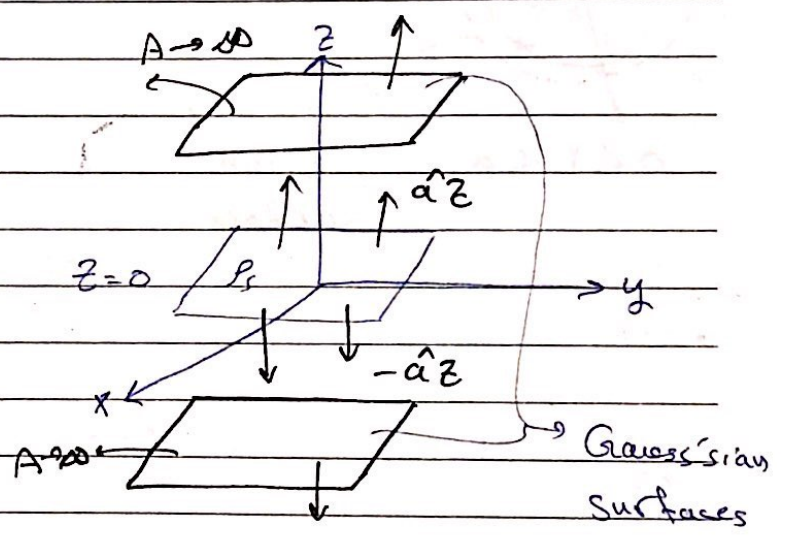 A→∞
z
âz
z=0
ρs
y
-âz
x
A→∞
Gauess'sian
surfaces